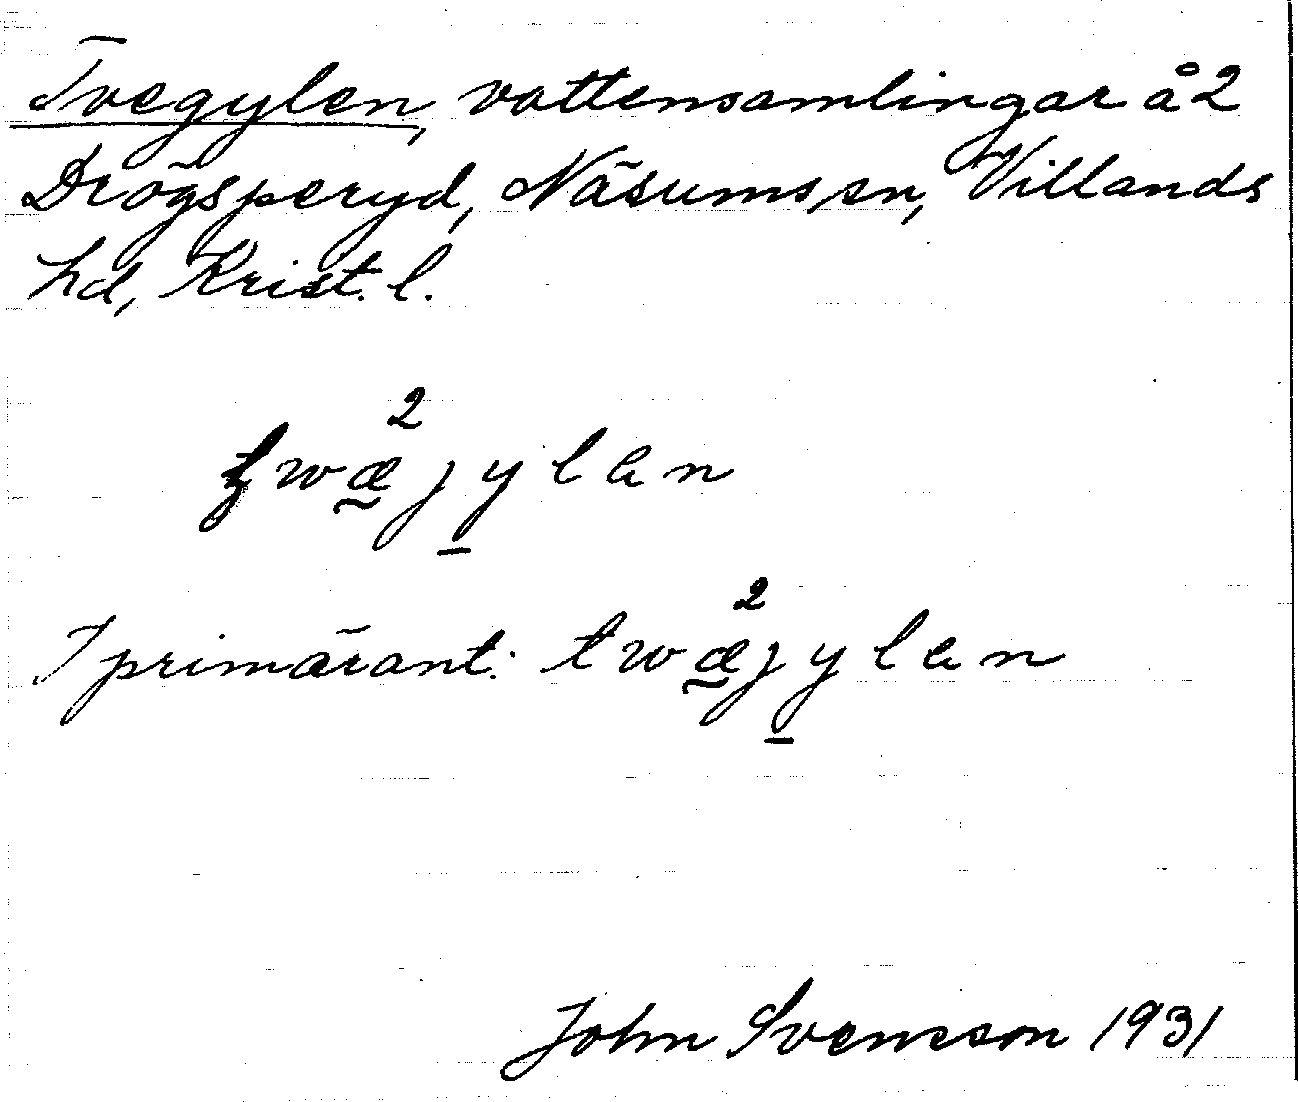 Tvegylen, vattensamlingar å 2
Drögsperyd, Näsums sn, Villands
hd, Krist. l.
2
twæjylen
I primärant: twæjylen
2
John Svensson 1931